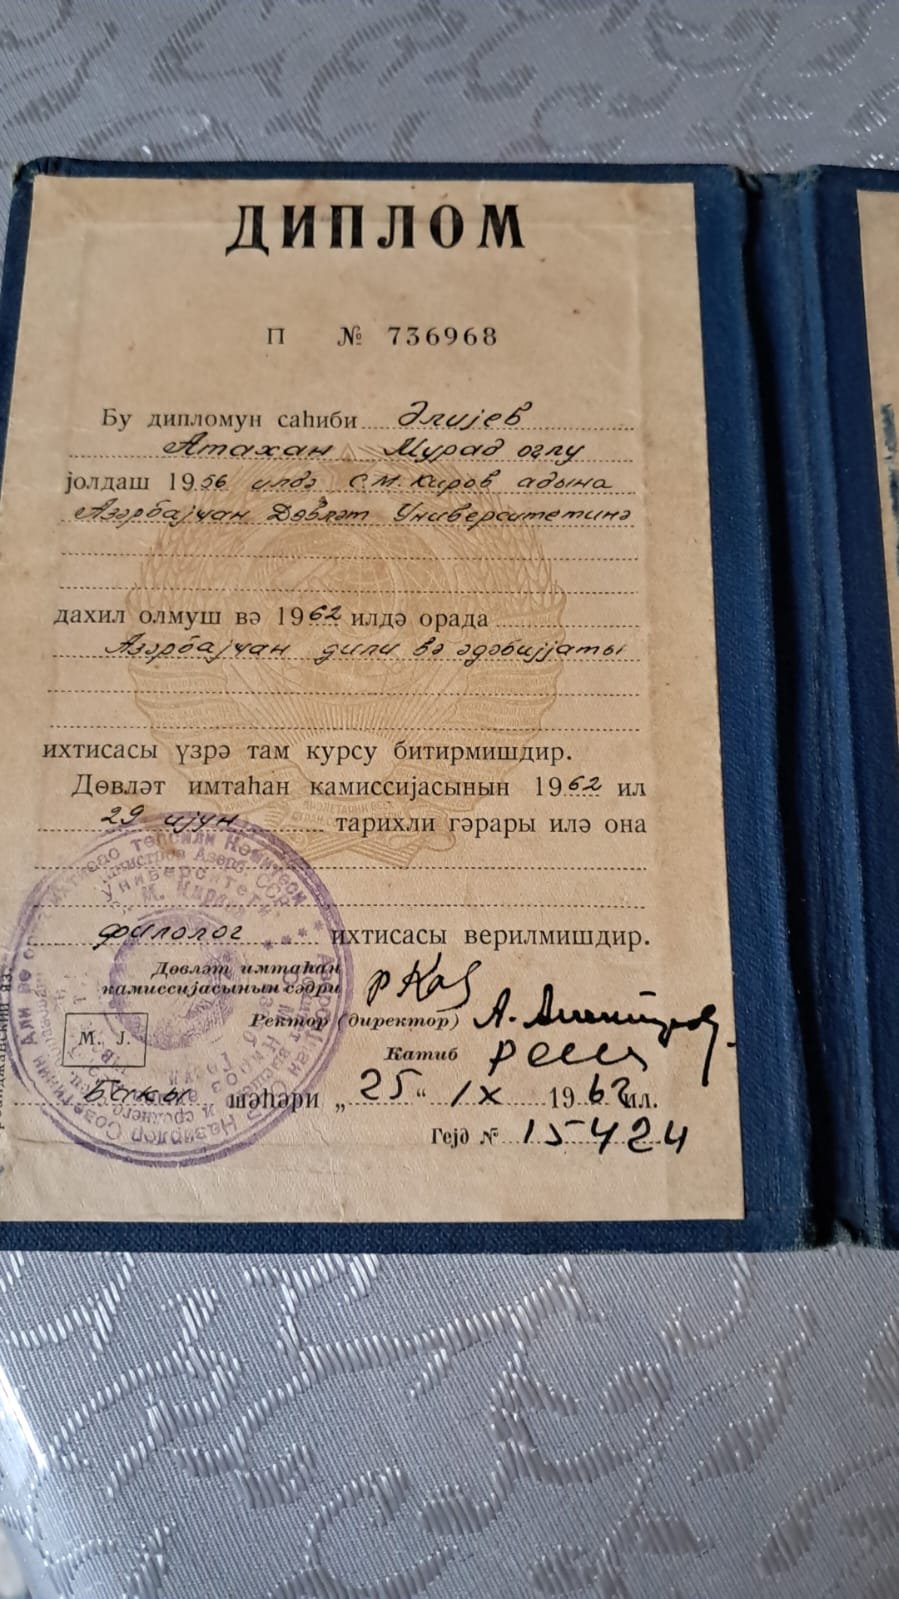 ДИПЛОМ
П № 736968
Бу дипломун саһиби Әлијев
Атахан Мурад оглу
јолдаш 1956 илдә С.М. Киров адына
Азәрбајҹан Дөвләт Университетинә
дахил олмуш вә 1962 илдә орада
Азәрбајҹан дили вә әдәбијјаты
ихтисасы үзрә там курсу битирмишдир.
Дөвләт имтаһан камиссијасынын 1962 ил
29 ијун тарихли гәрары илә она
филолог ихтисасы верилмишдир.
Дөвләт имтаһан
камиссијасынын сәдри
Ректор (директор)
Катиб
М. Ј.
Бакы шәһәри „25“ IX 1962 ил.
Гејд № 15424